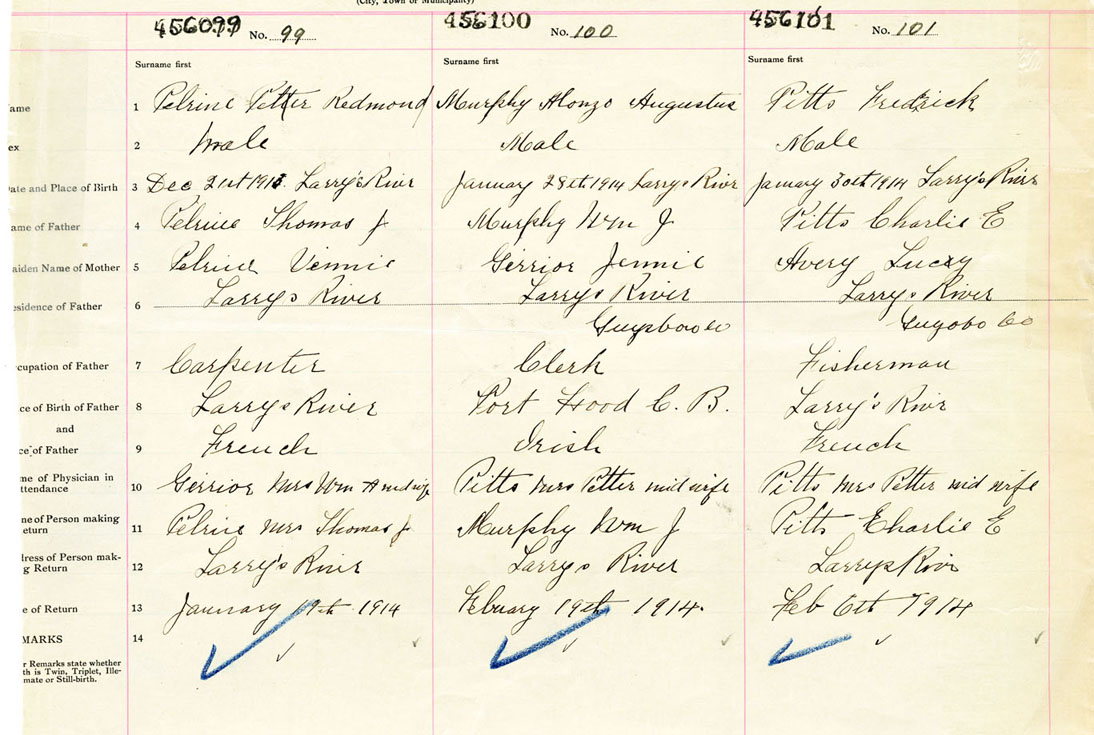 (City, Town or Municipality)
456099 No. 99 456100 No. 100 456101 No. 101
Surname first Surname first Surname first
ame 1 Pelrine Petter Redmond Murphy Alonzo Augustus Pitts Fredrick
ex 2 Male Male Male
ate and Place of Birth 3 Dec 21st 1913 Larry's River January 28th 1914 Larrys River January 30th 1914 Larry's River
ame of Father 4 Pelrine Thomas J Murphy Wm J Pitts Charlie E
aiden Name of Mother 5 Pelrine Vennie Gerrior Jennie Avery Lucey
esidence of Father 6 Larrys River Larrys River Larrys River
Guysboro Co Guysbo Co
cupation of Father 7 Carpenter Clerk Fisherman
ce of Birth of Father 8 Larrys River Port Hood C. B. Larry's River
and
ce of Father 9 French Irish French
me of Physician in
ttendance 10 Gerrior Mrs Wm A midwife Pitts Mrs Petter mid wife Pitts Mrs Petter mid wife
ne of Person making
eturn 11 Pelrine Mrs Thomas J Murphy Wm J Pitts Charlie E
dress of Person mak-
g Return 12 Larry's River Larrys River Larrys River
e of Return 13 January 19th 1914 Febuary 19th 1914. Feb 6th 1914
MARKS 14
r Remarks state whether
th is Twin, Triplet, Ille-
mate or Still-birth.